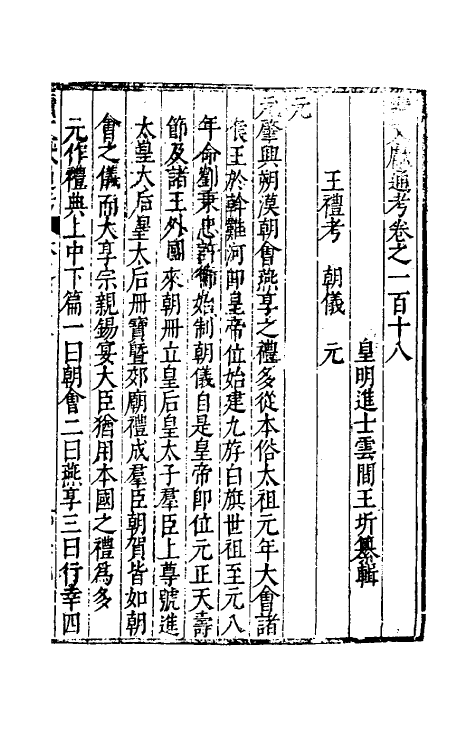 續文獻通考卷之一百十八
皇明進士雲間王圻纂輯
王禮考 朝儀 元
元
元肇興朔漠朝會燕享之禮多從本俗太祖元年大會諸
侯王於斡難河即皇帝位始建九斿白旗世祖至元八
年命劉秉忠許衡始制朝儀自是皇帝即位元正天壽
節及諸王外國來朝冊立皇后皇太子羣臣上尊號進
太皇太后皇太后冊寶暨郊廟禮成羣臣朝賀皆如朝
會之儀而大享宗親錫宴大臣猶用本國之禮為多
元作禮典上中下篇一曰朝會二曰燕享三曰行幸四